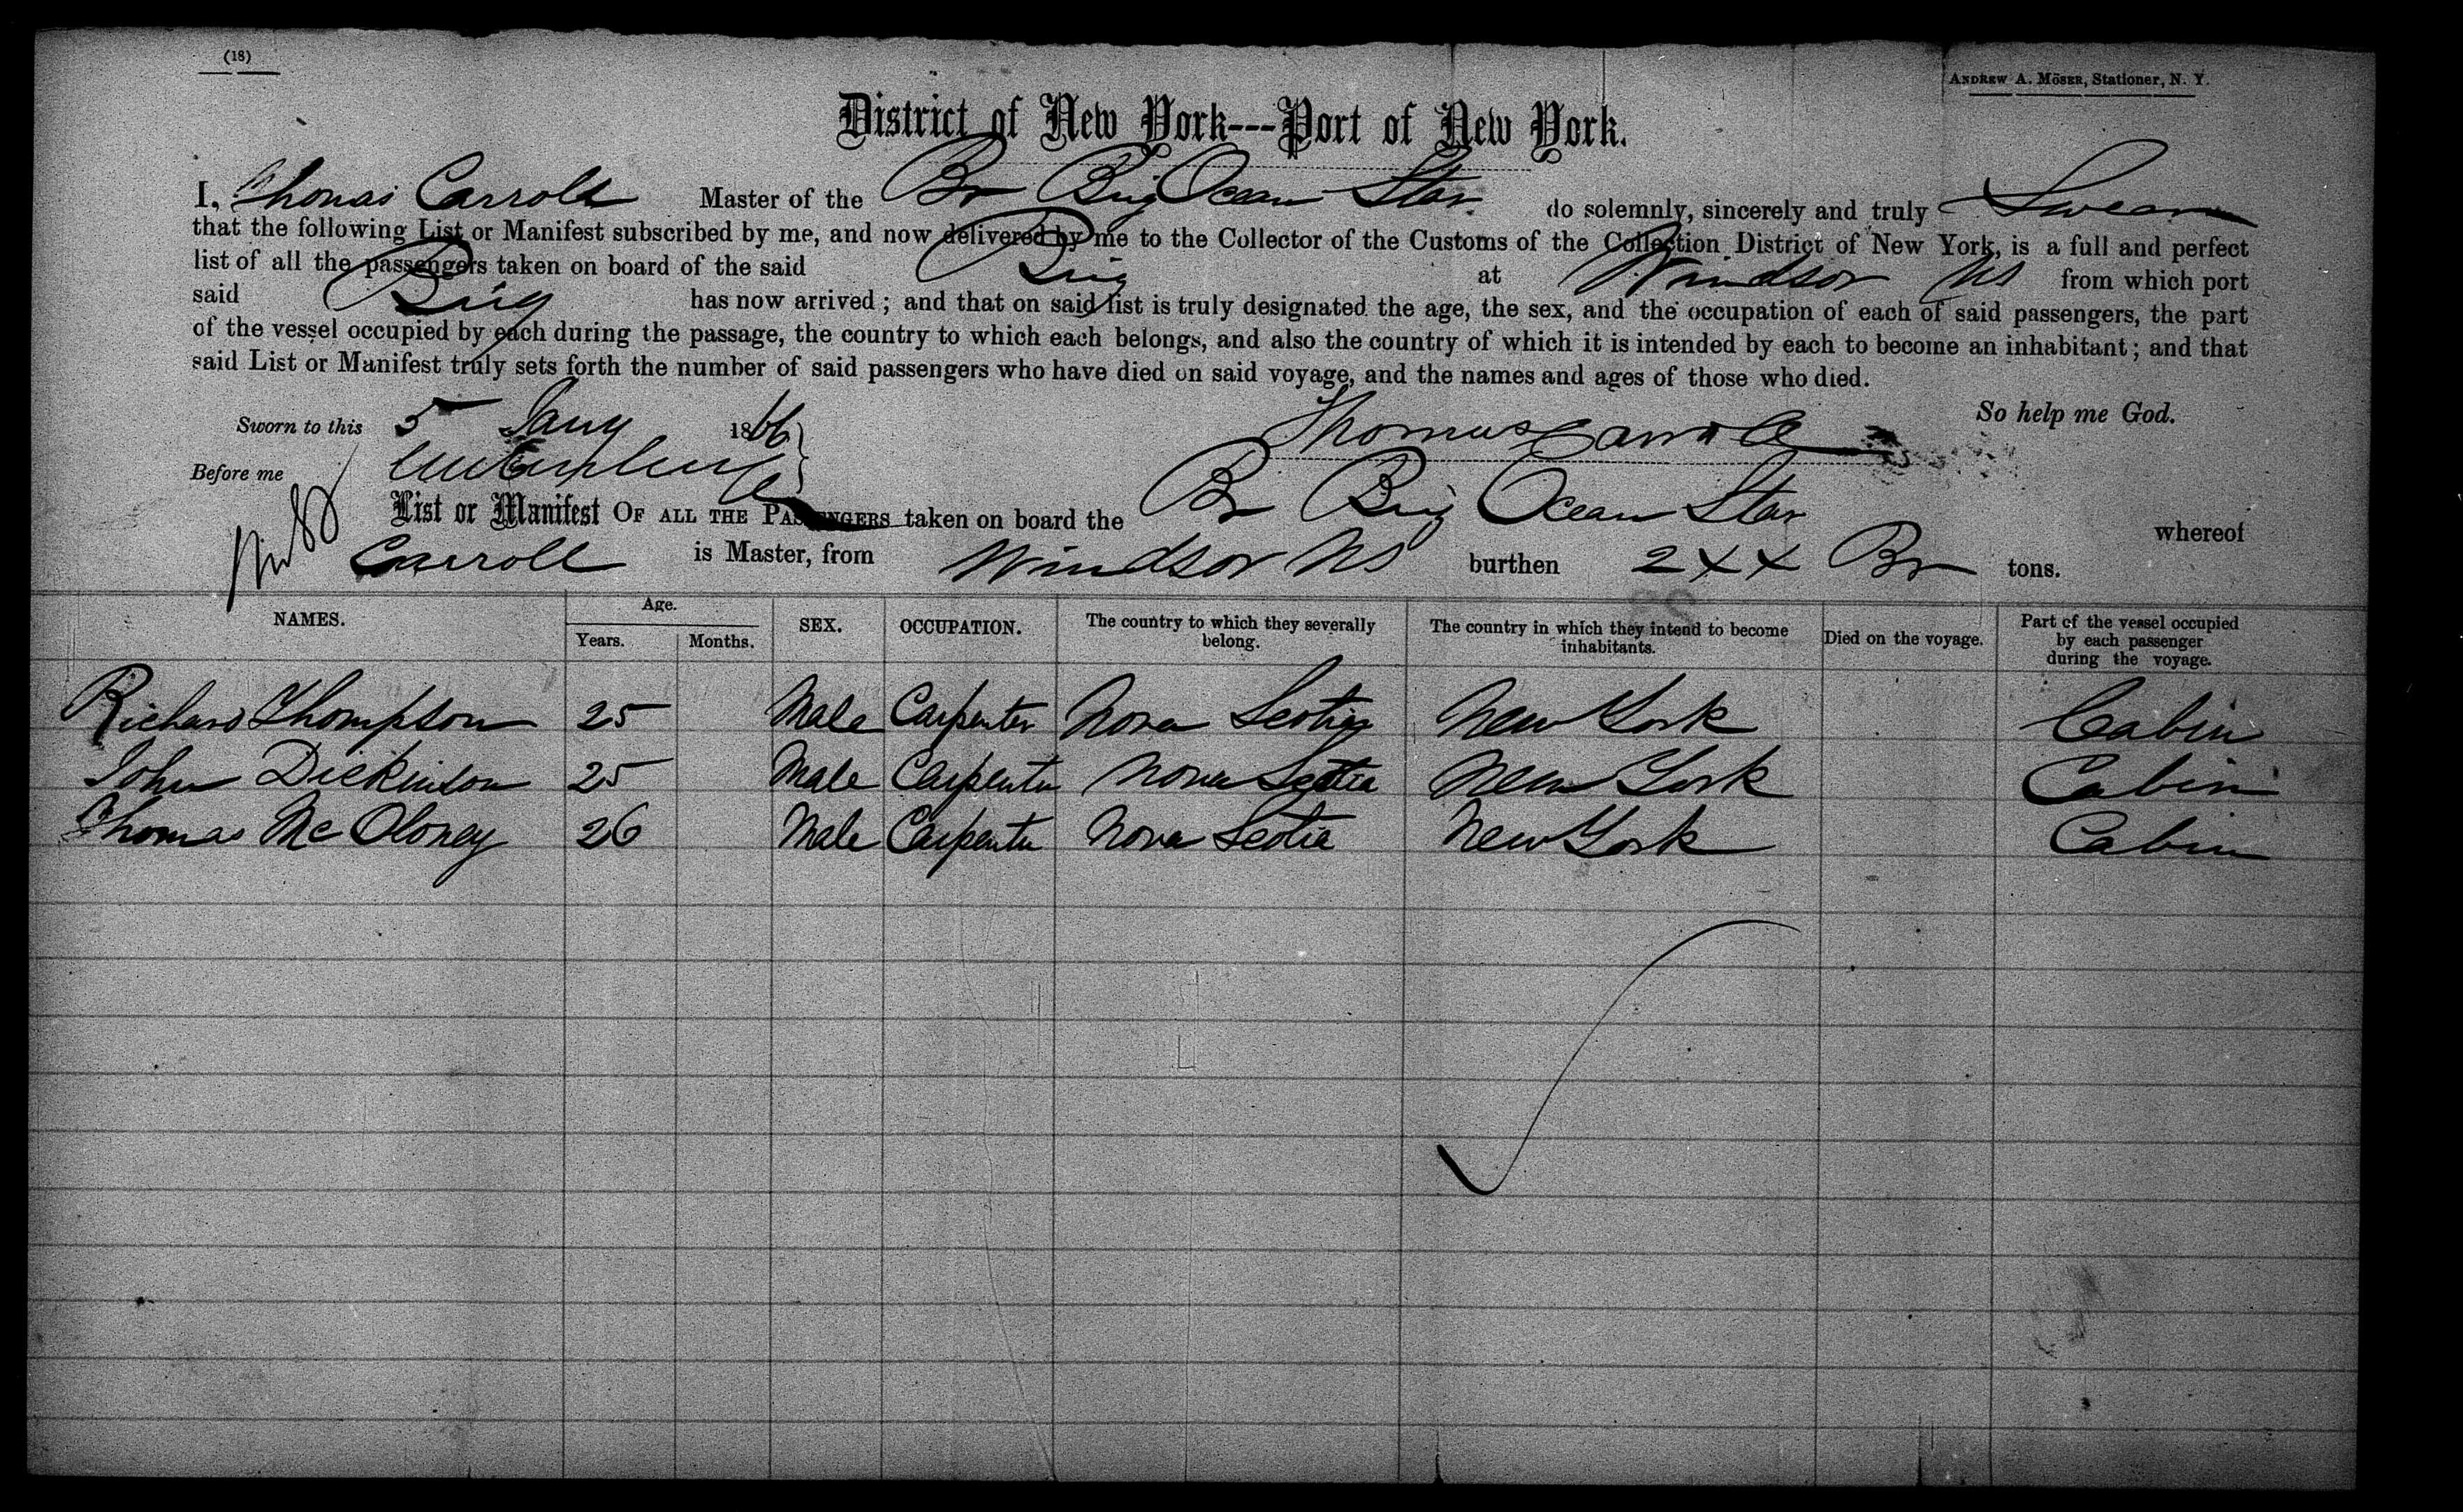 (18)
ANDREW A. MÖSER, Stationer, N. Y.
District of New York---Port of New York.
I, Thomas Carroll Master of the Br Brig Ocean Star do solemnly, sincerely and truly Swear
that the following List or Manifest subscribed by me, and now delivered by me to the Collector of the Customs of the Collection District of New York, is a full and perfect
list of all the passengers taken on board of the said Brig at Windsor NS from which port
said Brig has now arrived; and that on said list is truly designated the age, the sex, and the occupation of each of said passengers, the part
of the vessel occupied by each during the passage, the country to which each belongs, and also the country of which it is intended by each to become an inhabitant; and that
said List or Manifest truly sets forth the number of said passengers who have died on said voyage, and the names and ages of those who died.
So help me God.
Sworn to this 5 Jany 1866 Thomas Carroll
Before me
List or Manifest OF ALL THE PASSENGERS taken on board the Br Brig Ocean Star whereof
Carroll is Master, from Windsor NS burthen 2 Br tons.
NAMES. Age. Years. Months. SEX. OCCUPATION. The country to which they severally belong. The country in which they intend to become inhabitants. Died on the voyage. Part of the vessel occupied by each passenger during the voyage.
Richard Thompson 25 Male Carpenter Nova Scotia New York Cabin
John Dickinson 25 Male Carpenter Nova Scotia New York Cabin
Thomas McOloney 26 Male Carpenter Nova Scotia New York Cabin